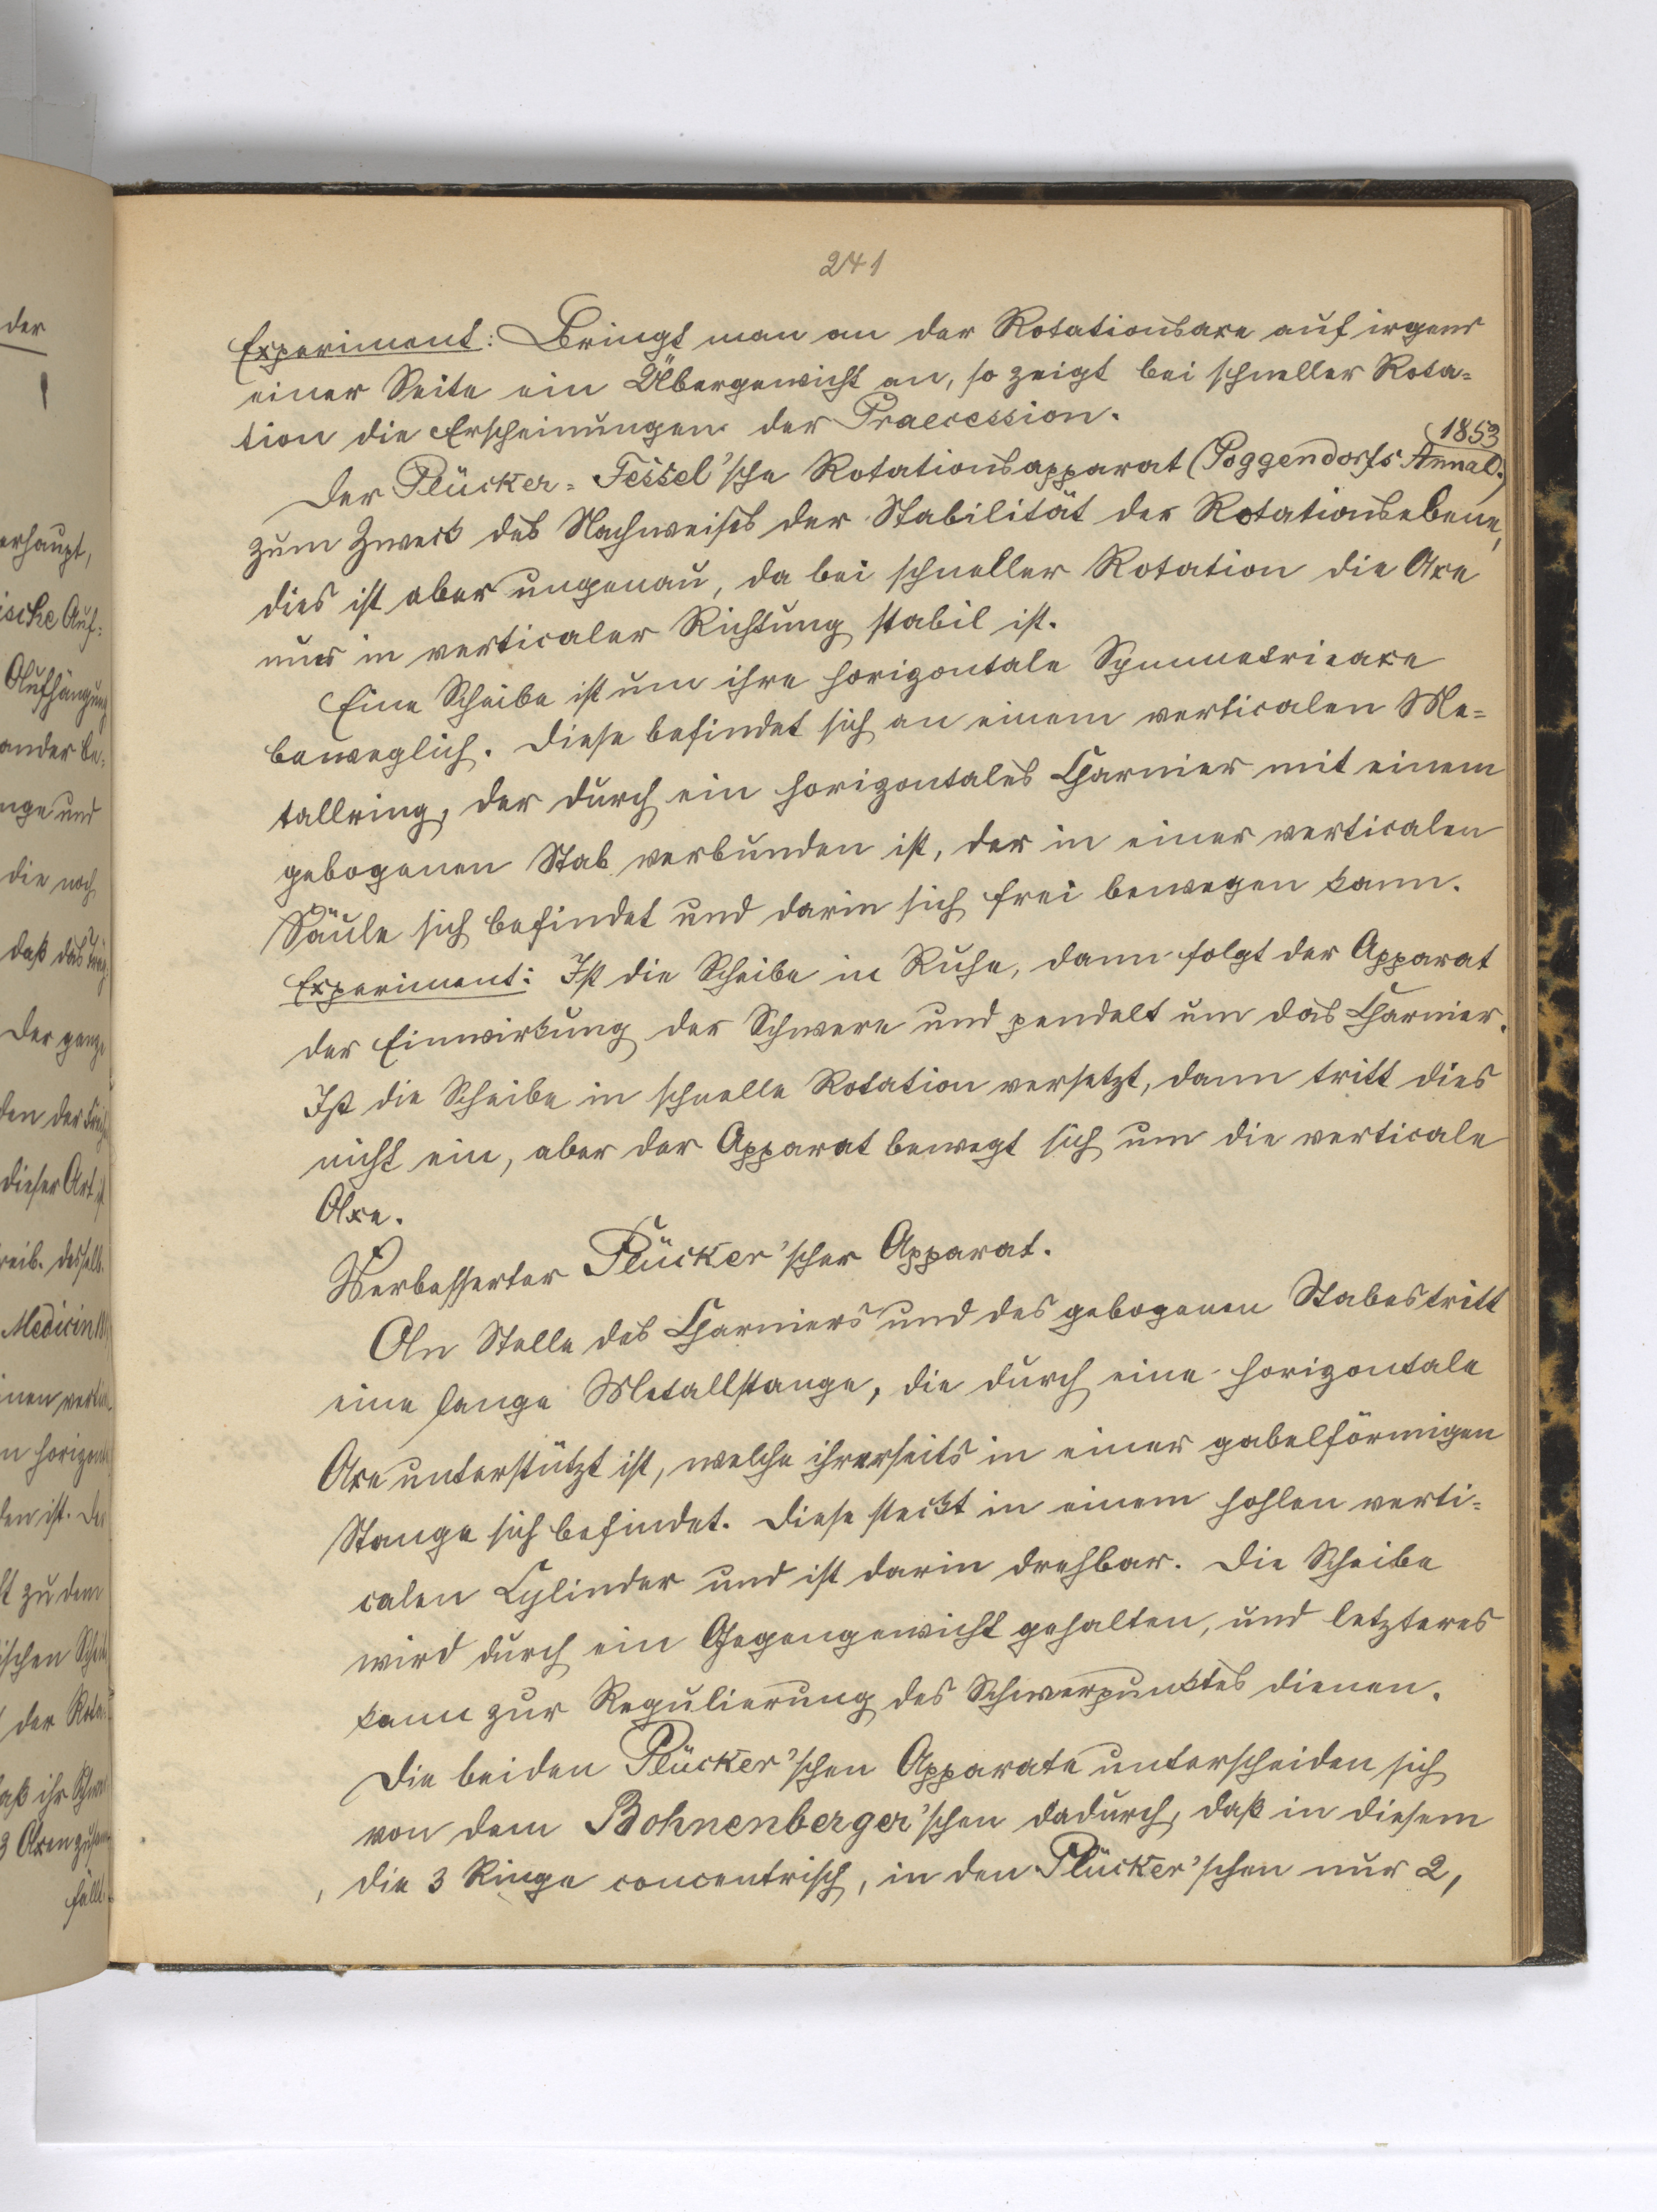 241
Experiment: Bringt man an der Rotationsaxe auf irgend
einer Seite ein Übergewicht an, so zeigt bei schneller Rota=
tion die Erscheinungen der Praecession.
1853
Der Plücker=Fessel'sche Rotationsapparat (Poggendorfs Annal.)
zum Zweck des Nachweises der Stabilität der Rotationsebene,
dies ist aber ungenau, da bei schneller Rotation die Axe
nur in verticaler Richtung stabil ist.
Eine Scheibe ist um ihre horizontale Symmetrieaxe
beweglich. Diese befindet sich an einem verticalen Me=
tallring, der durch ein horizontales Charnier mit einem
gebogenen Stab verbunden ist, der in einer verticalen
Säule sich befindet und darin sich frei bewegen kann.
Experiment: Ist die Scheibe in Ruhe, dann folgt der Apparat
der Einwirkung der Schwere und pendelt um das Charnier.
Ist die Scheibe in schnelle Rotation versetzt, dann tritt dies
nicht ein, aber der Apparat bewegt sich um die verticale
Axe.
Verbesserter Plücker'scher Apparat.
An Stelle des Charniers und des gebogenen Stabes tritt
eine lange Metallstange, die durch eine horizontale
Axe unterstützt ist, welche ihrerseits in einer gabelförmigen
Stange sich befindet. Diese steckt in einem hohlen verti=
calen Cylinder und ist darin drehbar. Die Scheibe
wird durch ein Gegengewicht gehalten, und letzteres
kann zur Regulierung des Schwerpunktes dienen.
Die beiden Plücker'schen Apparate unterscheiden sich
von dem Bohnenberger'schen dadurch, daß in diesem
die 3 Ringe concentrisch, in den Plücker'schen nur 2,
der
erhaupt,
ische Auf=
Aufhängung
ander be=
nge und
die noch
daß das
der ganze
den der
dieser Art
desselb.
Medicin
horizont
den ist. Der
zu dem
ischen
der Rota=
daß ihr
3 Axen
fällt